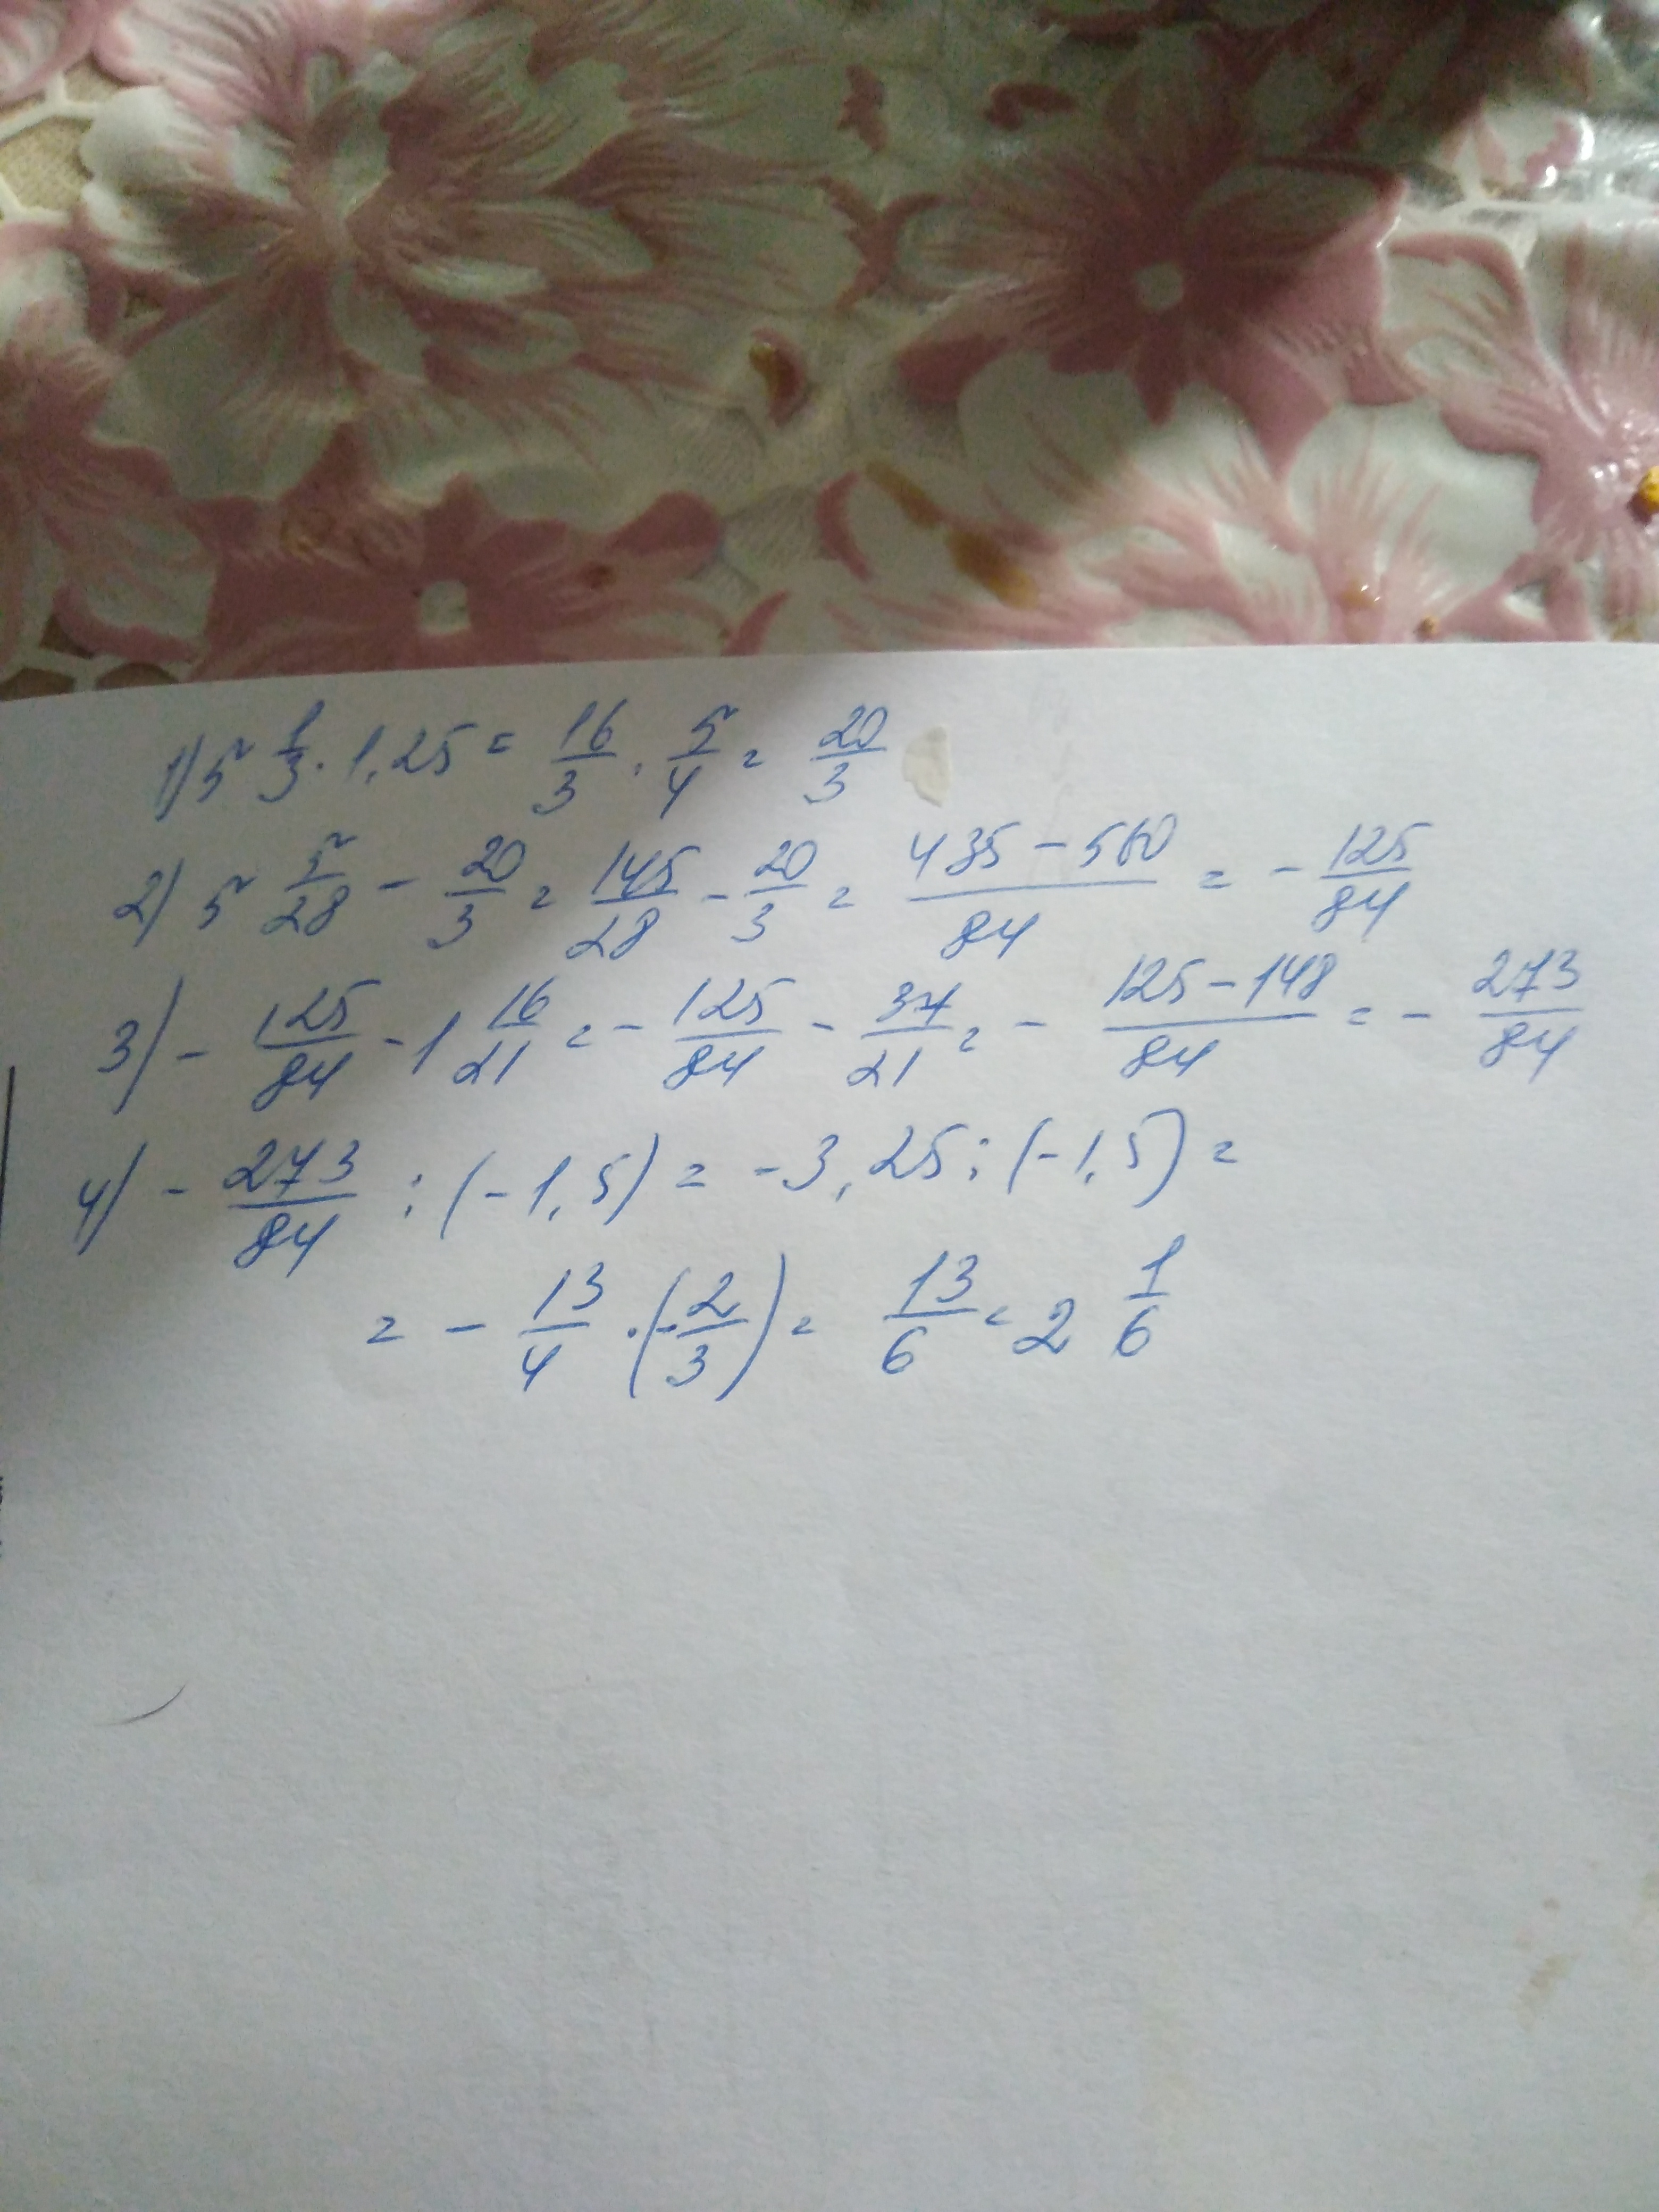 1) 5 1/3 · 1,25 = 16/3 · 5/4 = 20/3
2) 5 5/28 - 20/3 = 145/28 - 20/3 = (435 - 560)/84 = - 125/84
3) - 125/84 - 1 16/21 = - 125/84 - 37/21 = - (125 - 148)/84 = - 273/84
4) - 273/84 : (-1,5) = -3,25 : (-1,5) =
= - 13/4 · (-2/3) = 13/6 = 2 1/6